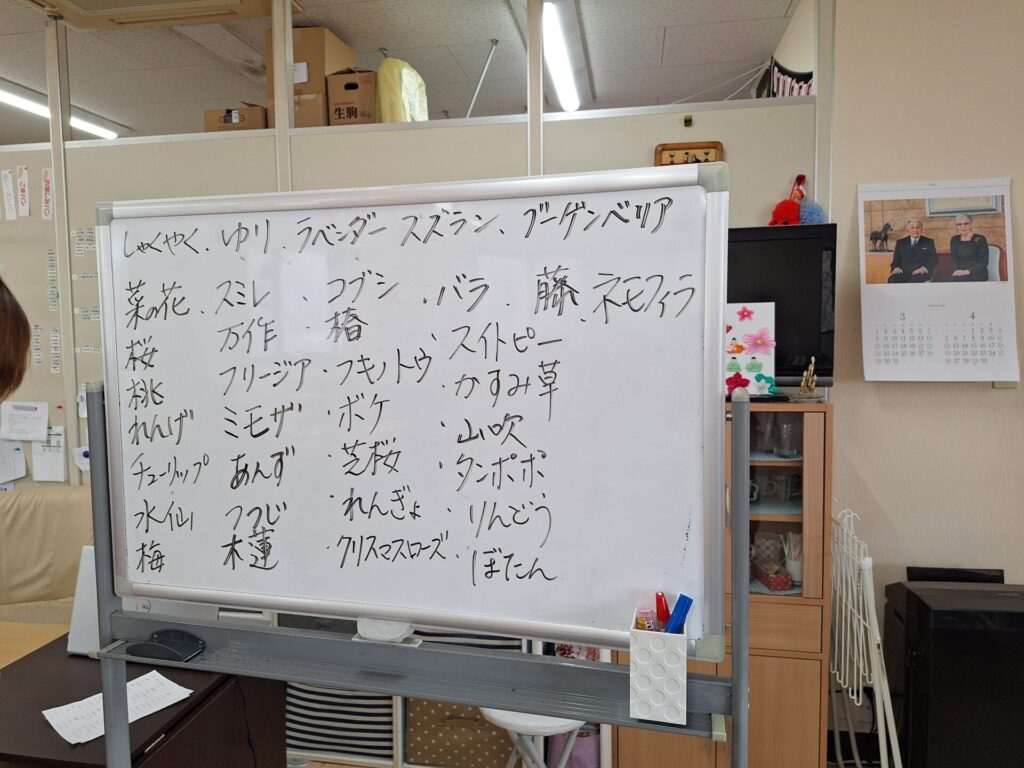 生駒
しゃくやく、ゆり、ラベンダー スズラン、ブーゲンベリア
菜の花 スミレ ・コブシ ・バラ ・藤 ・ネモフィラ
桜 万作 椿 ・スイトピー
桃 フリージア ・フキノトウ ・かすみ草
れんげ ミモザ ・ボケ ・山吹
チューリップ あんず ・芝桜 ・タンポポ
水仙 つつじ れんぎょ ・りんどう
梅 木蓮 ・クリスマスローズ ・ぼたん
3 4